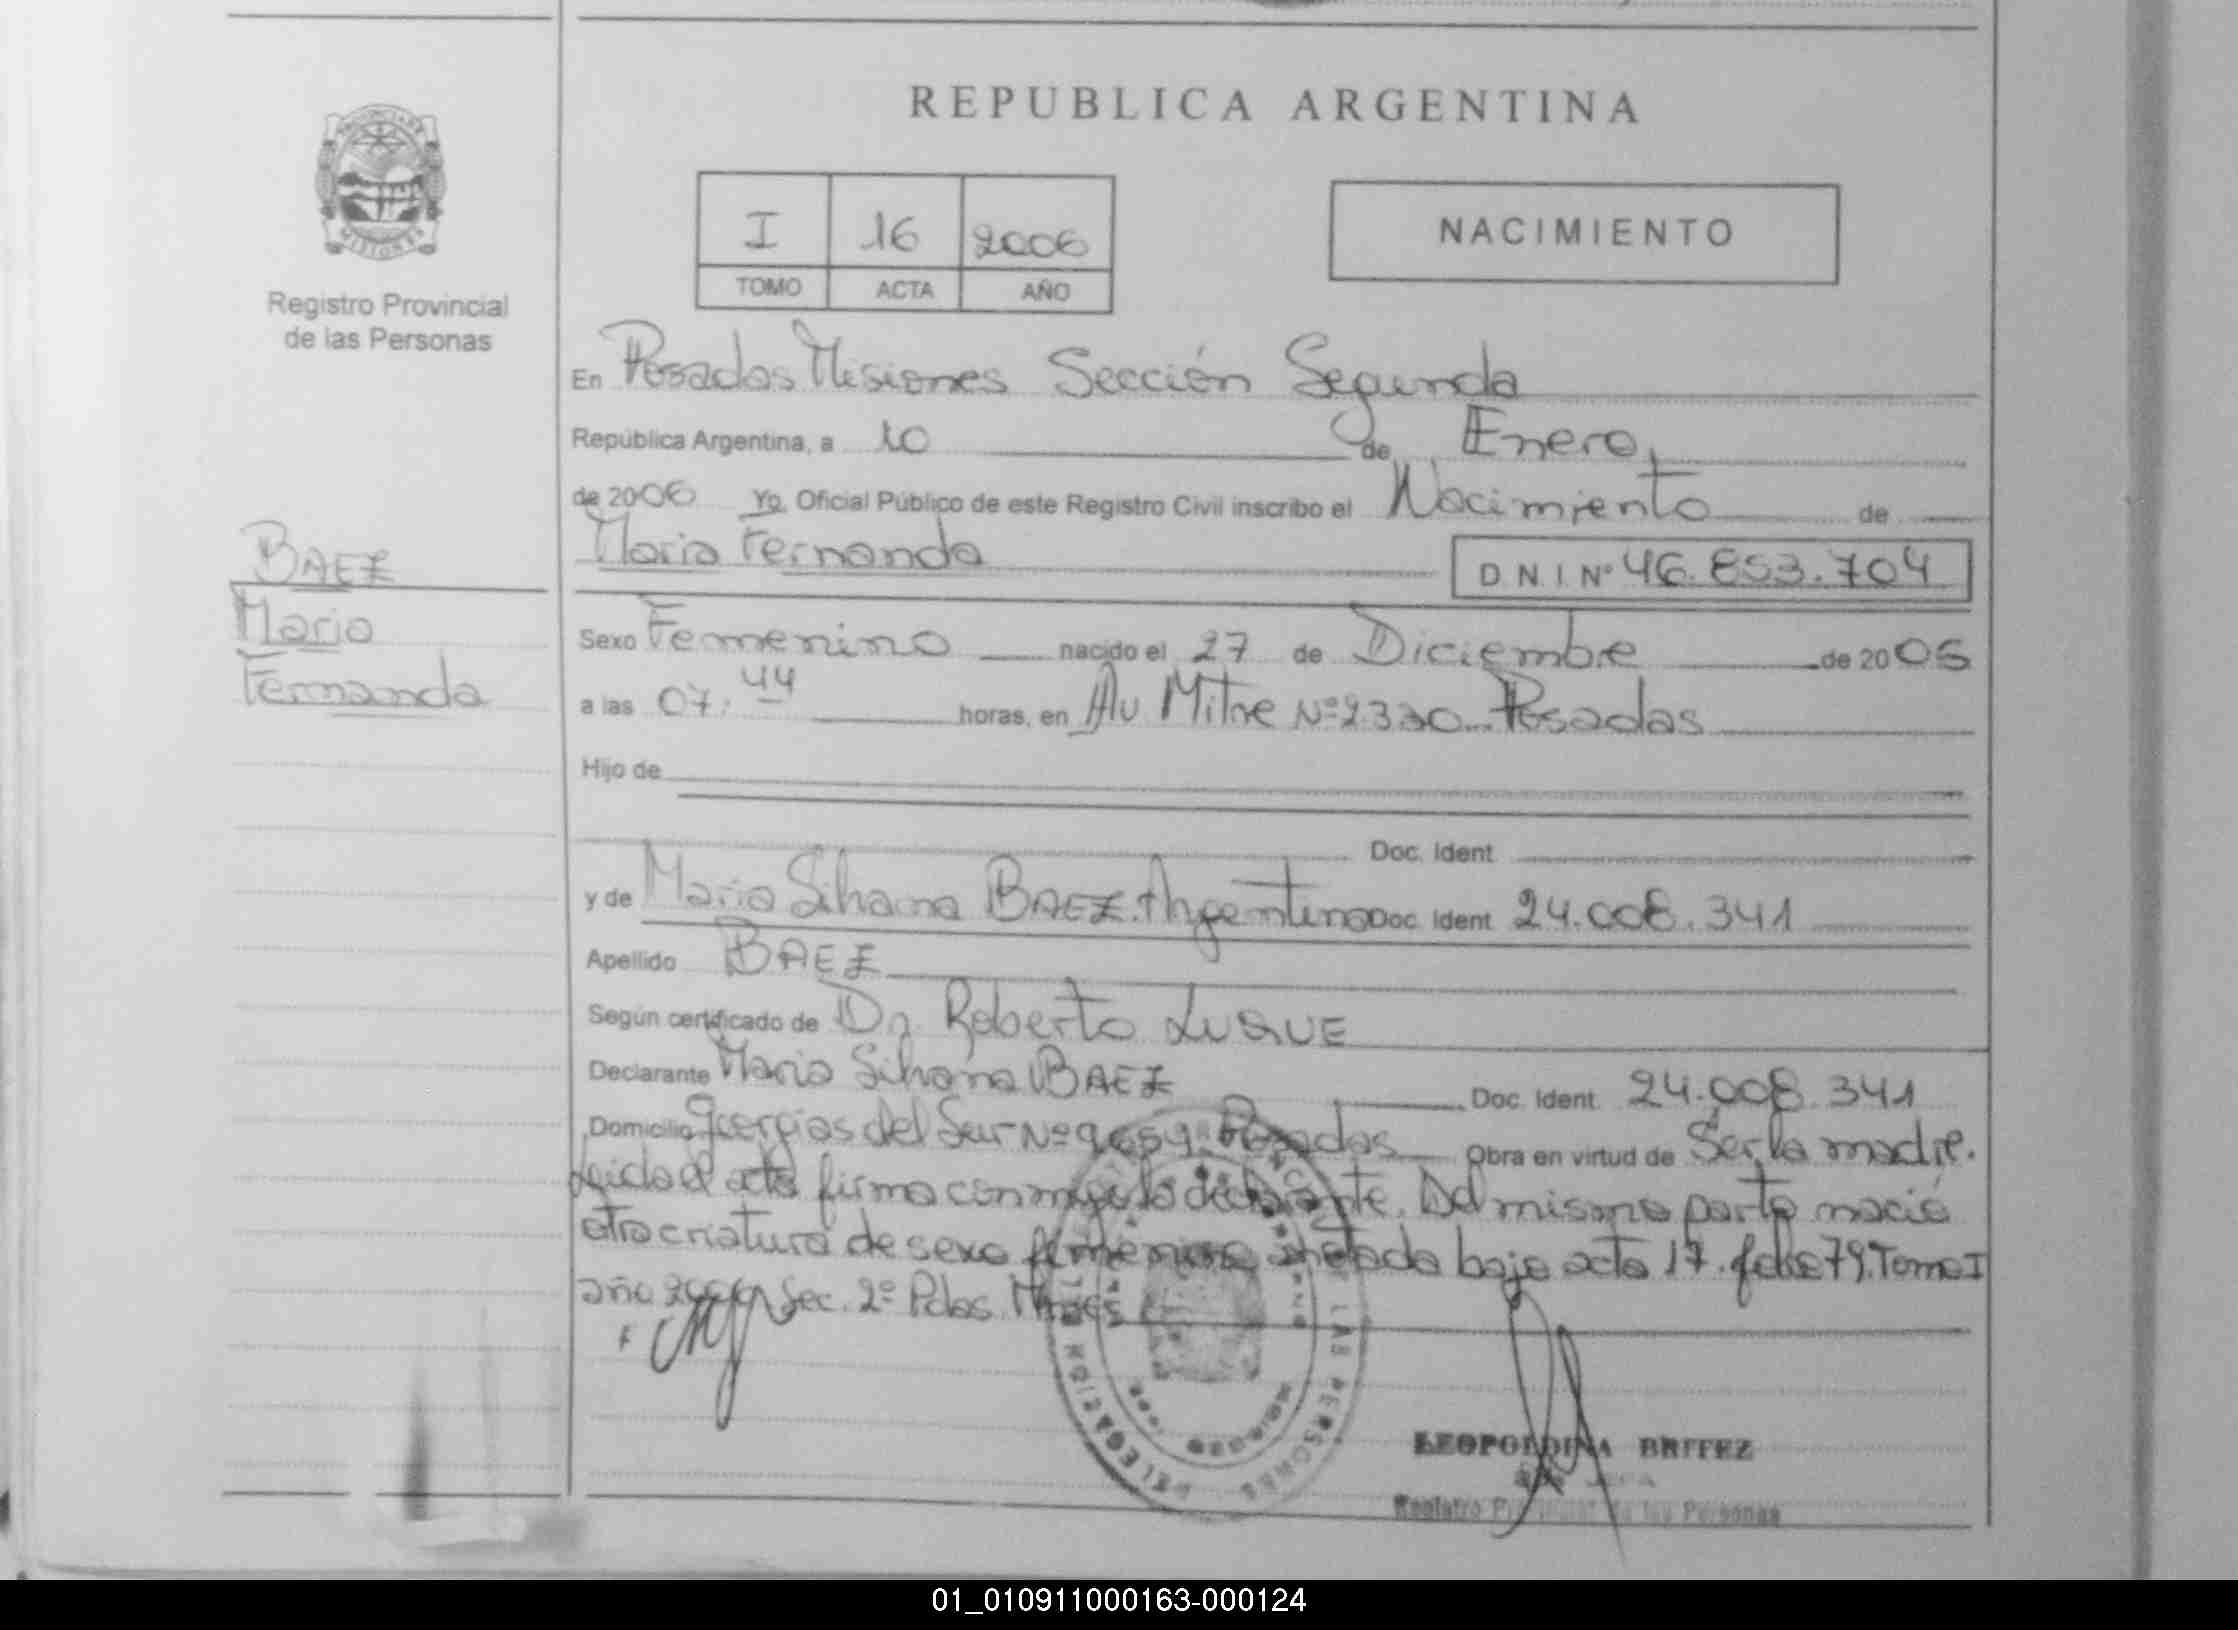 REPUBLICA ARGENTINA
PROVINCIA DE
MISIONES
Registro Provincial
de las Personas
I 16 2006
TOMO ACTA AÑO
NACIMIENTO
En Posadas Misiones Sección Segunda
República Argentina, a 10 de Enero
de 2006 Yo, Oficial Público de este Registro Civil inscribo el Nacimiento de
Maria Fernanda D N. I. Nº 46.853.704
BAEZ
Maria
Fernanda
Sexo Femenino nacido el 27 de Diciembre de 2005
a las 07:44 horas, en Av Mitre Nº 2330 Posadas
Hijo de
Doc. Ident.
y de Maria Silvana BAEZ. Argentina Doc. Ident. 24.008.341
Apellido BAEZ
Según certificado de Dr. Roberto LUQUE
Declarante Maria Silvana BAEZ Doc. Ident. 24.008.341
Domicilio Georgias del Sur Nº Posadas Obra en virtud de Ser la madre.
Leida el acta firma conmigo la declarante. Del mismo parto nació
otra criatura de sexo femenino anotada bajo acta 17. folio 79. Tomo I
año 2006 Sec. 2º Pdas. Mnes
DELEGACION
LAS PERSONAS
LEOPOLDINA BRITEZ
JEFA
Registro Provincial de las Personas
01_010911000163-000124